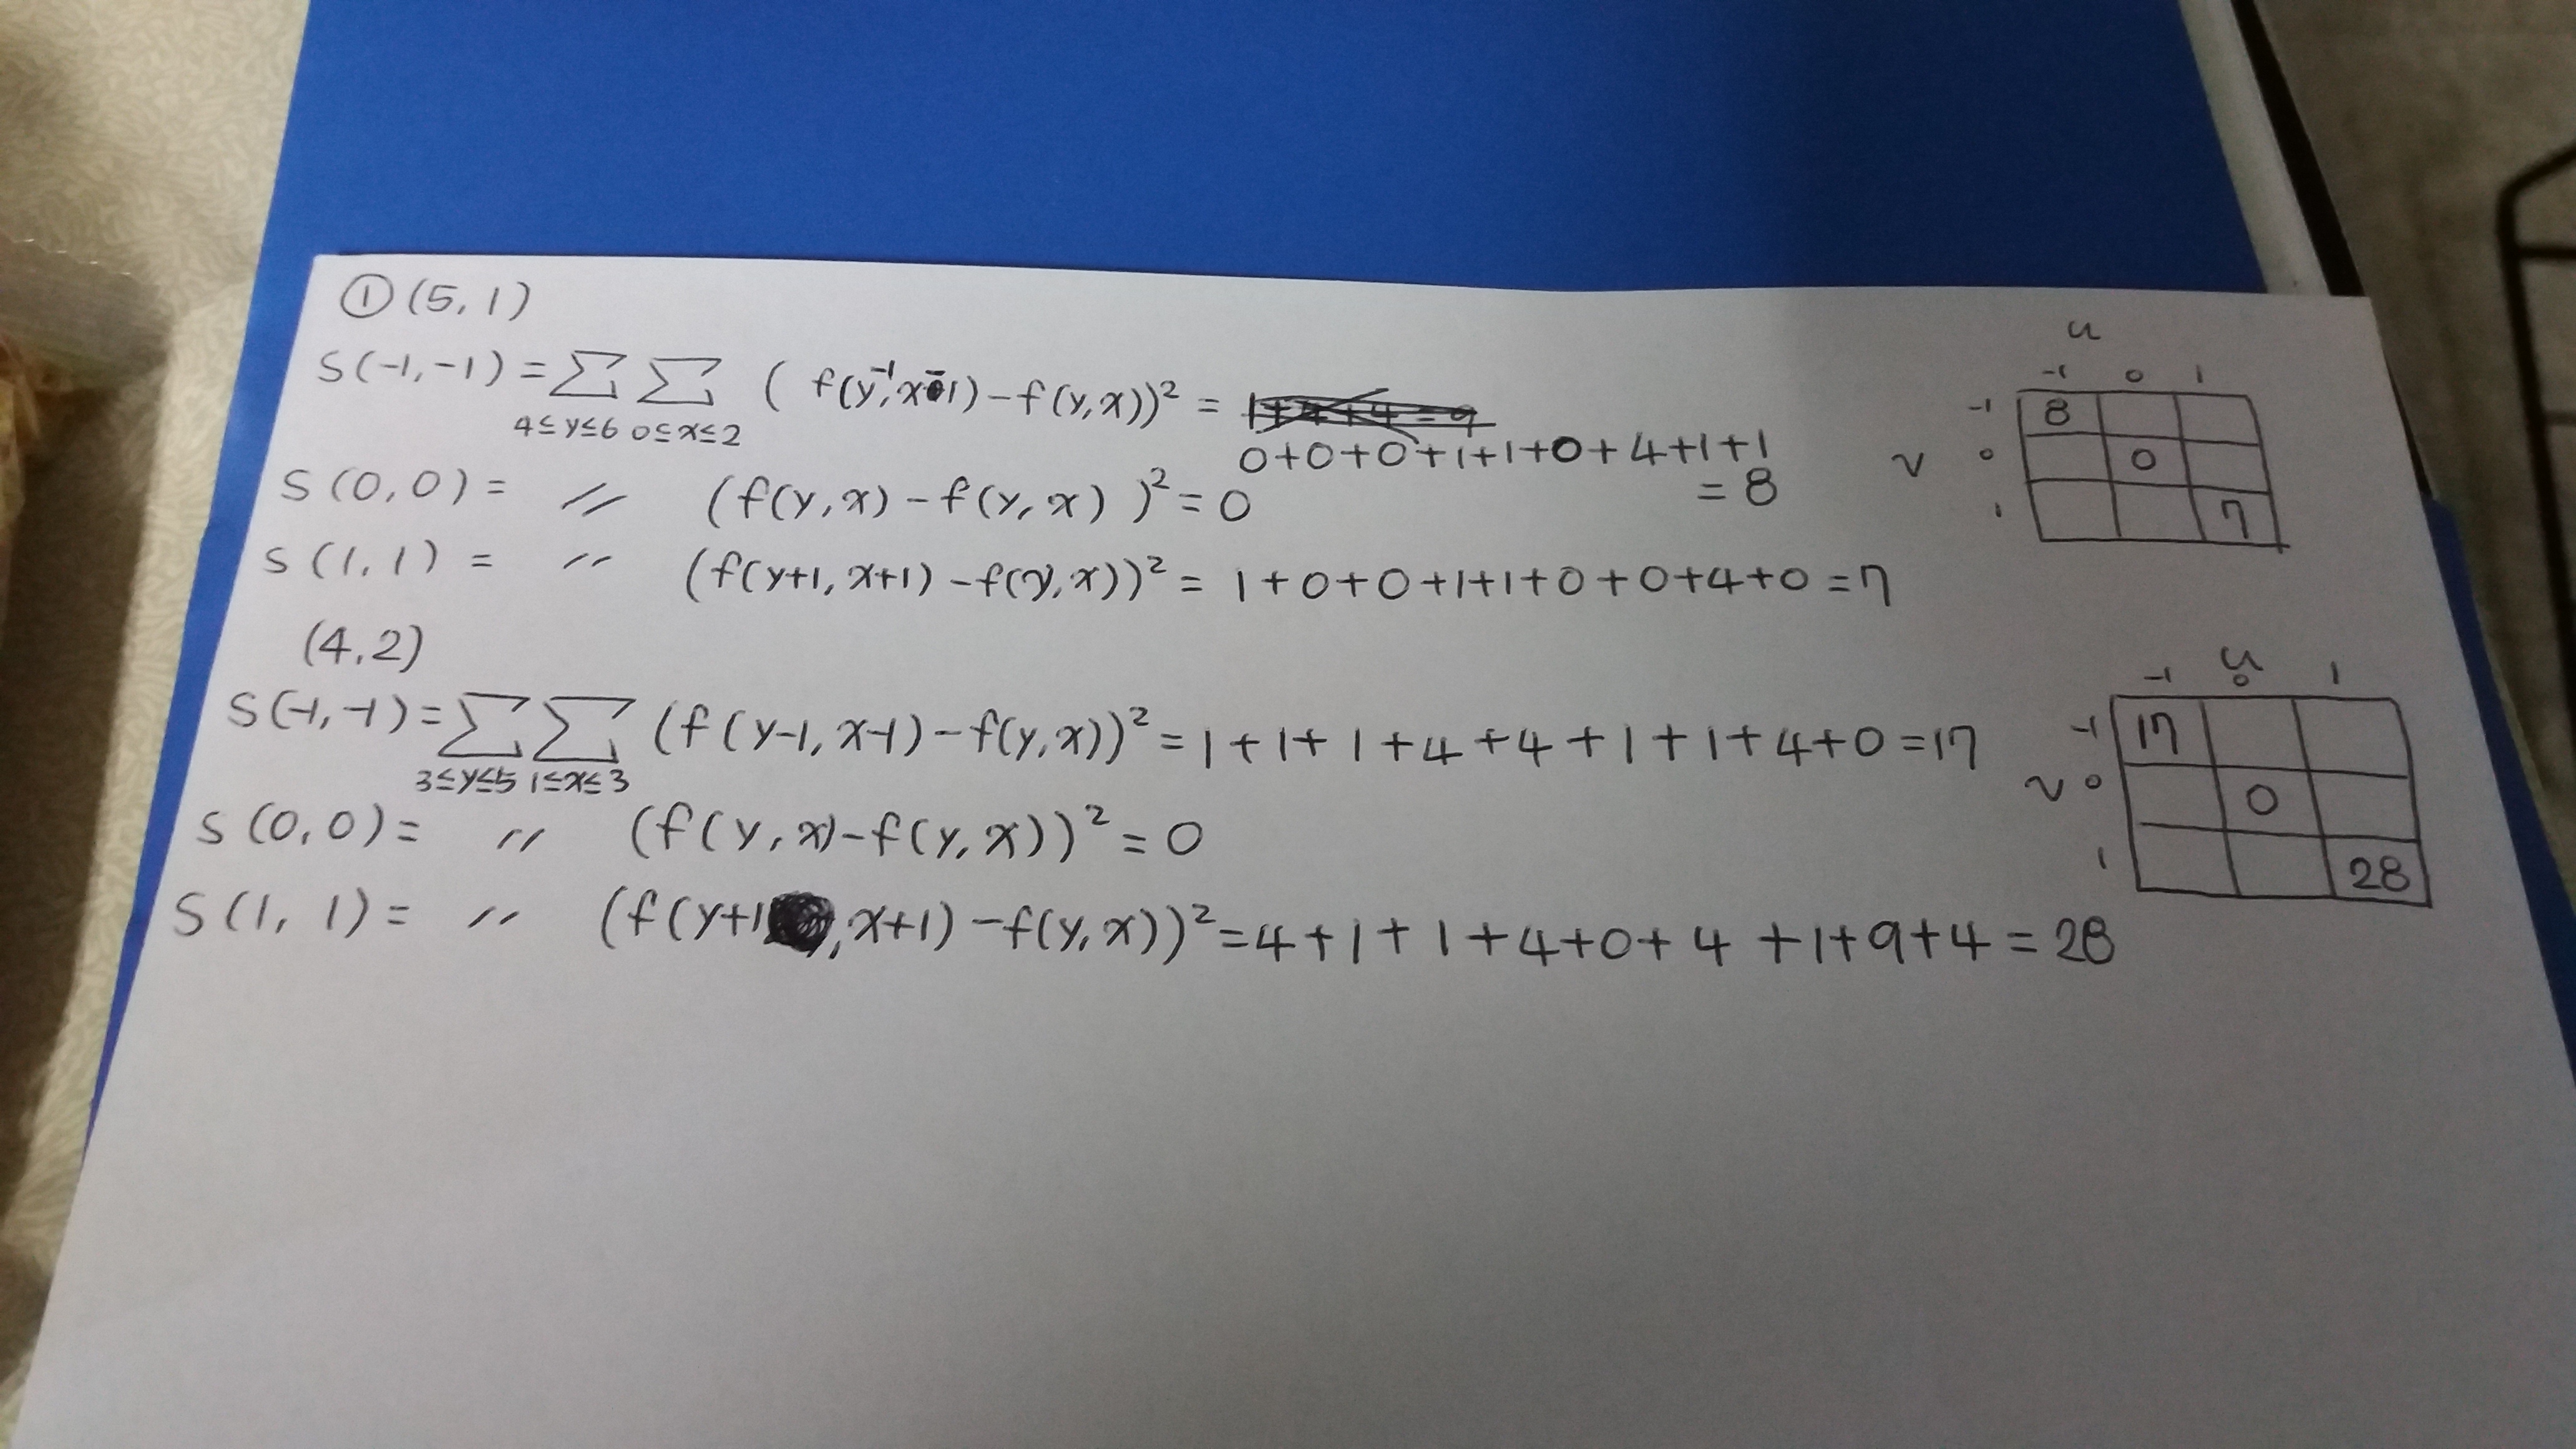 ① (5, 1)
S(-1, -1) = ∑ ∑ ( f(y-1, x-1) - f(y, x))² = 1+4+4=9
4≤y≤6 0≤x≤2
0+0+0+1+1+0+4+1+1
= 8
S(0, 0) = 〃 (f(y, x) - f(y, x) )² = 0
S(1, 1) = 〃 (f(y+1, x+1) - f(y, x))² = 1+0+0+1+1+0+0+4+0 = 7
u
-1 0 1
-1 8
v 0 0
1 7
(4, 2)
S(-1, -1) = ∑ ∑ (f(y-1, x-1) - f(y, x))² = 1+1+1+4+4+1+1+4+0 = 17
3≤y≤5 1≤x≤3
S(0, 0) = 〃 (f(y, x) - f(y, x))² = 0
S(1, 1) = 〃 (f(y+1, x+1) - f(y, x))² = 4+1+1+4+0+4+1+9+4 = 28
u
-1 0 1
-1 17
v 0 0
1 28